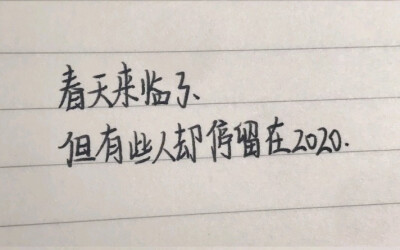 春天来临了、
但有些人却停留在2020.